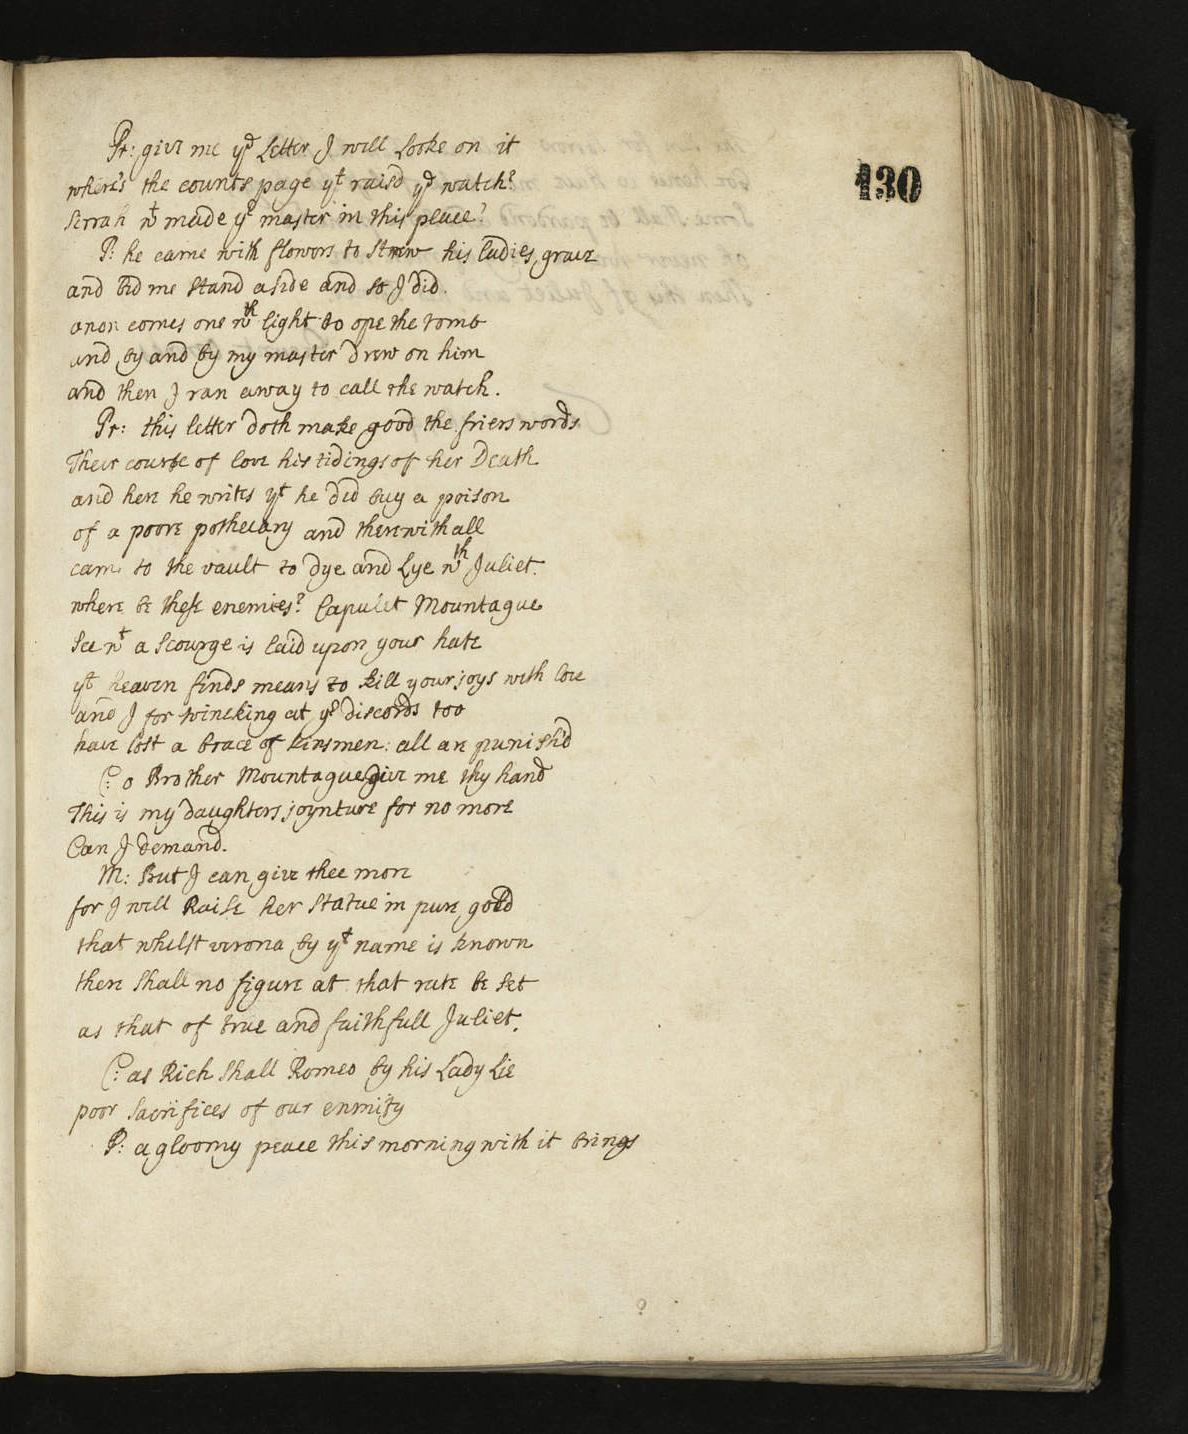 130
Pr: give me yͤ Letter J will Looke on it
where's the counts page yͭ raisd yͤ watch?
Serrah wͭ made yͬ master in this place?
P: he came with flowers to Strew his ladies grave
and bid me Stand aside and so J did.
anon comes one wᵗʰ light to ope the tomb
and by and by my master drew on him
and then J ran away to call the watch.
Pr: this letter doth make good the friers words
Their course of love his tidings of her Death
and here he writes yͭ he did buy a poison
of a poore pothecary and therewithall
came to the vault to dye and Lye wᵗʰ Juliet.
where be these enemies? Capulet Mountague
See wͭ a Scourge is laid upon your hate
yͭ heaven finds means to kill your joys with love
and J for wincking at yͬ discords too
have lost a brace of kinsmen: all are punish'd
C: o Brother Mountague give me thy hand
This is my daughters joynture for no more
Can J demand.
M: But J can give thee more
for J will Raise her Statue in pure gold
that whilst verona by yͭ name is known
there Shall no figure at that rate be Set
as that of true and faithfull Juliet.
C: as Rich Shall Romeo by his Lady Lie
poor Sacrifices of our enmity
P: a gloomy peace this morning with it brings